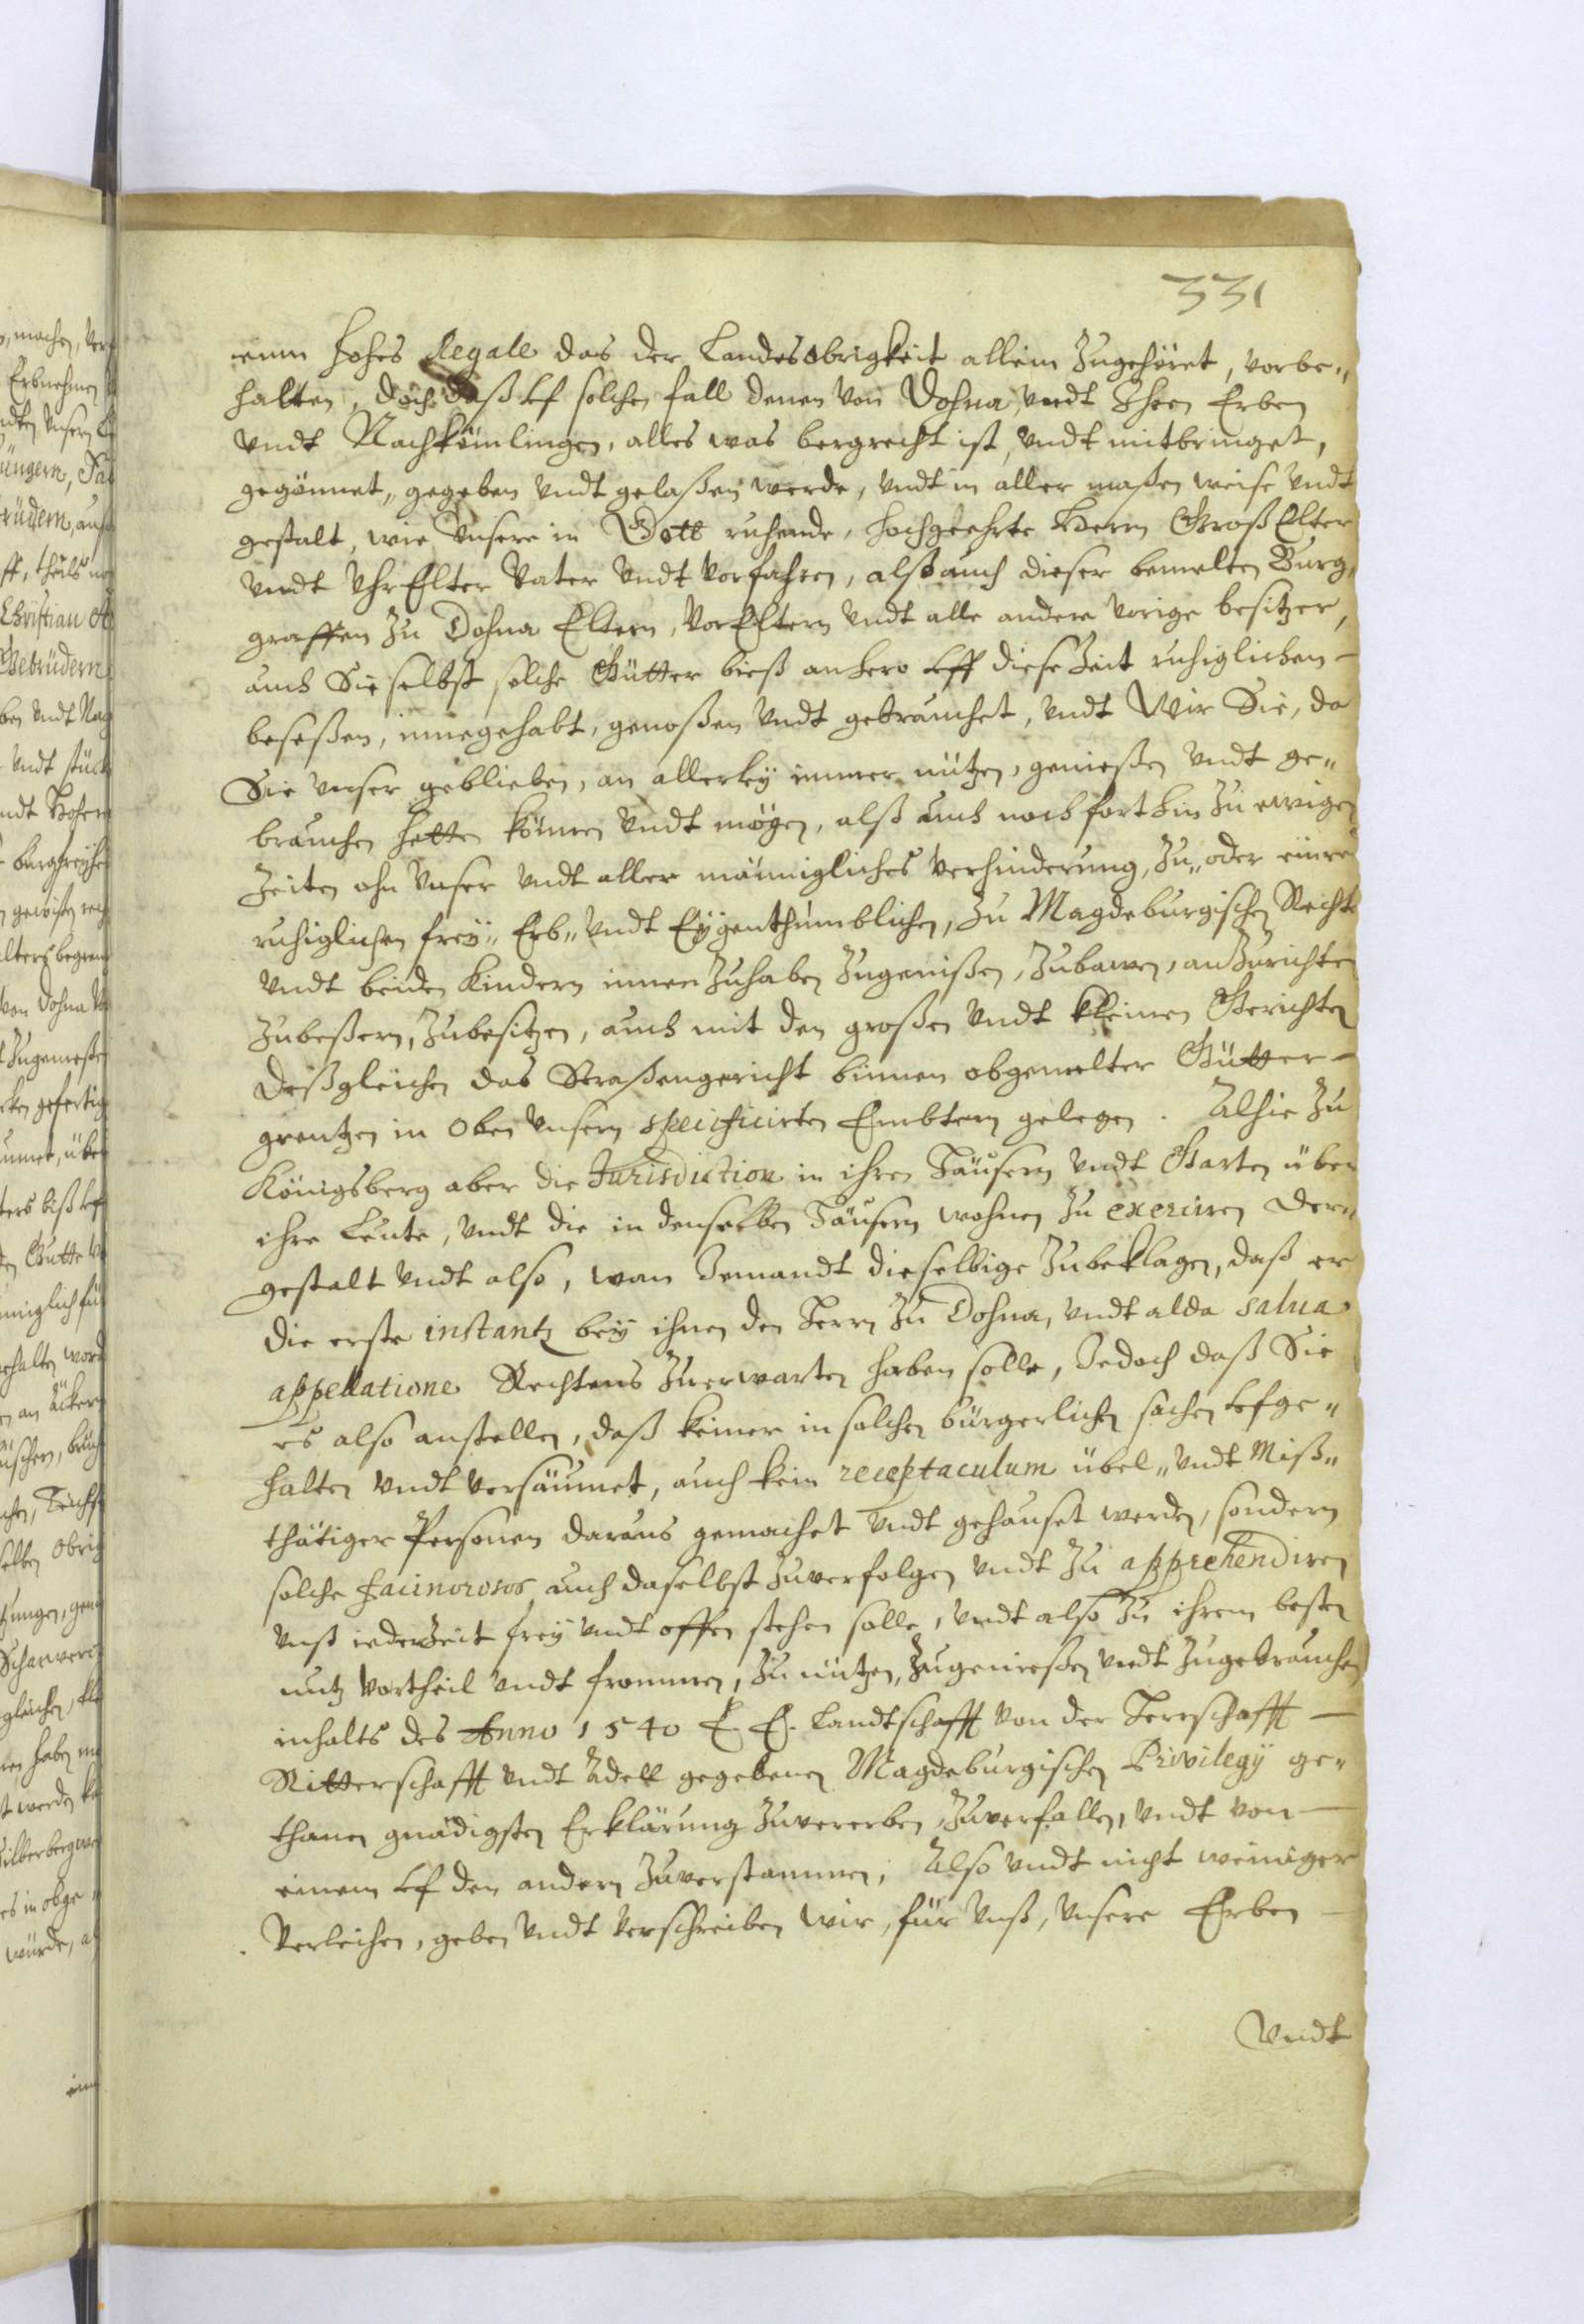 331
einn hohes Regale das der Landesobrigkeit allein Zugehöret, vorbe„
halten, doch daß vf solchen fall denen von Dohna, vndt Ihren Erben
vndt Nachkömlingen, alles was bergrecht ist, vndt mitbringet,
gegönnet, gegeben vndt gelaßen werde, vndt in aller maßen weise vndt
gestalt, wie Vnsere in Gott ruhende, hochgeehrte Herrn GroßElter
vndt VhrElter Vater vndt vorfahren, alß auch dieser bemelten Burg„
graffen zu Dohna Eltern, VorEltern vndt alle andere vorige besitzer,
auch Sie selbst solche Gütter bieß anhero vff diese Zeit ruhiglichen –
beseßen, innegehabt, genoßen vndt gebrauchet, vndt Wir Sie, da
Sie vnser geblieben, an allerley immer nützen, genießen vndt ge„
brauchen hetten können vndt mögen, alß auch noch forthin zu ewigen
Zeiten ohn Vnser vndt aller männigliches verhinderung, Zu„ oder einrede
ruhiglichen frey„ Erb„ vndt Eygenthumblichen, Zu Magdeburgischen Rechte
vndt beiden Kindern innen Zuhaben Zugenißen, Zubawen, anZurichten
Zubeßern, Zubesitzen, auch mit den großen vndt kleinen Gerichten
deßgleichen das Straßengericht binnen obgemelter Gütter –
grentzen in Oben Vnsern specificirten Embtern gelegen. Alhie Zu
Königsberg aber die Jurisdiction in ihren Häusern vndt Garten über
ihre Leute, vndt die in denselben Häusern wohnen zu exerciren der„
gestalt vndt also, wan Jemandt dieselbige Zubeklagen, daß er
die erste instantz bey ihnen den Herrn Zu Dohna, vndt alda salua
appellatione Rechtens Zuerwarten haben solle, Jedoch daß Sie
es also anstellen, daß keiner in solchen bürgerlichen sachen vfge„
halten vndt versäumet, auch kein receptaculum übel„ vndt Miß„
thätiger Personen daraus gemachet vndt gehauset werden, sondern
solche facinorosos auch daselbst Zuverfolgen vndt Zu apprehendiren
Vnß iederZeit frey vndt offen stehen solle, vndt also Zu ihrem besten
nutz vortheil vndt frommen, Zu nützen, Zugenießen vndt Zugebrauchen
inhalts des Anno 1540 E. E. Landtschafft von der Herrschafft –
Ritterschafft vndt Adell gegebenen Magdeburgischen Privilegÿ ge„
thanen gnädigsten Erklärung Zuvererben, Zuverfallen, vndt von –
einem vf den andern Zuverstammen; Also vndt nicht weiniger
Verleihen, geben vndt verschreiben Wir, für Vnß, Vnsere Erben –
Vndt